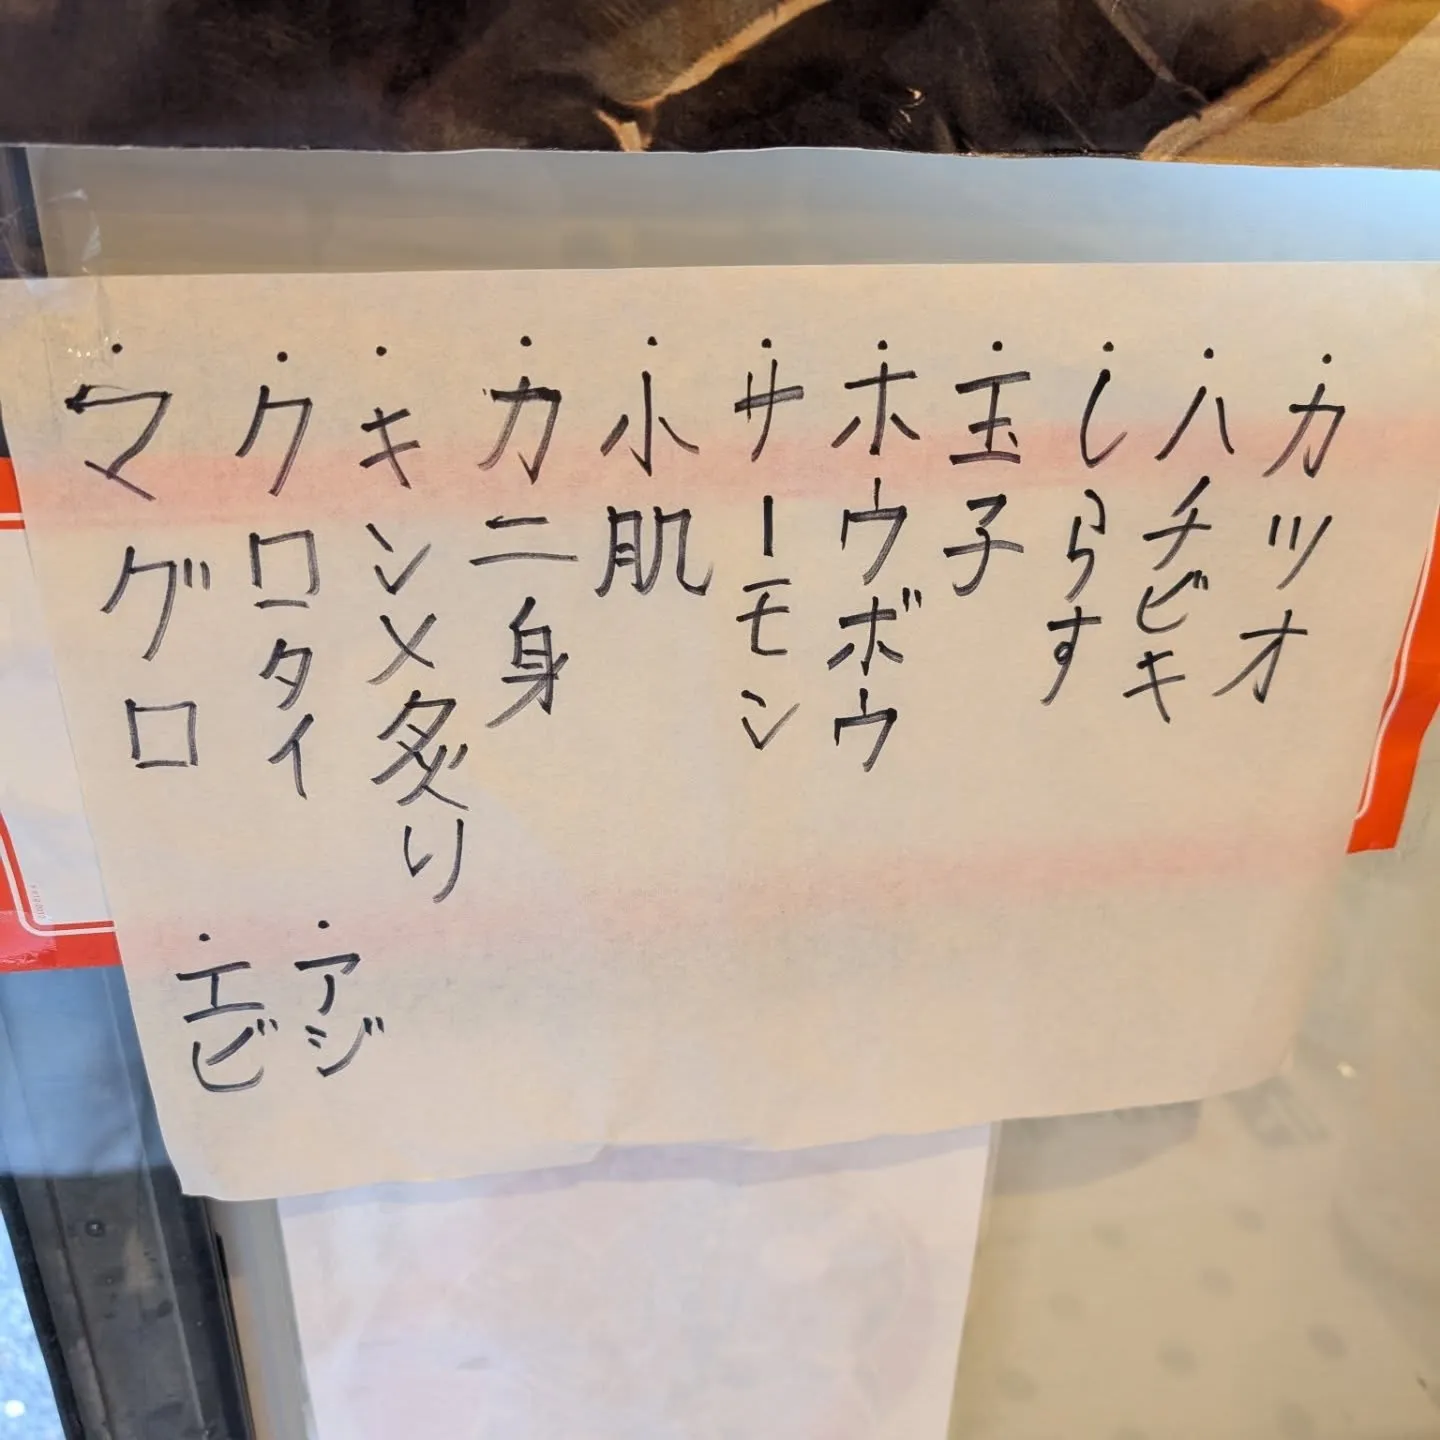 ・カツオ
・ハチビキ
・しらす
・玉子
・ホウボウ
・サーモン
・小肌
・カニ身
・キンメ炙り
・クロタイ
・マグロ
・アジ
・エビ